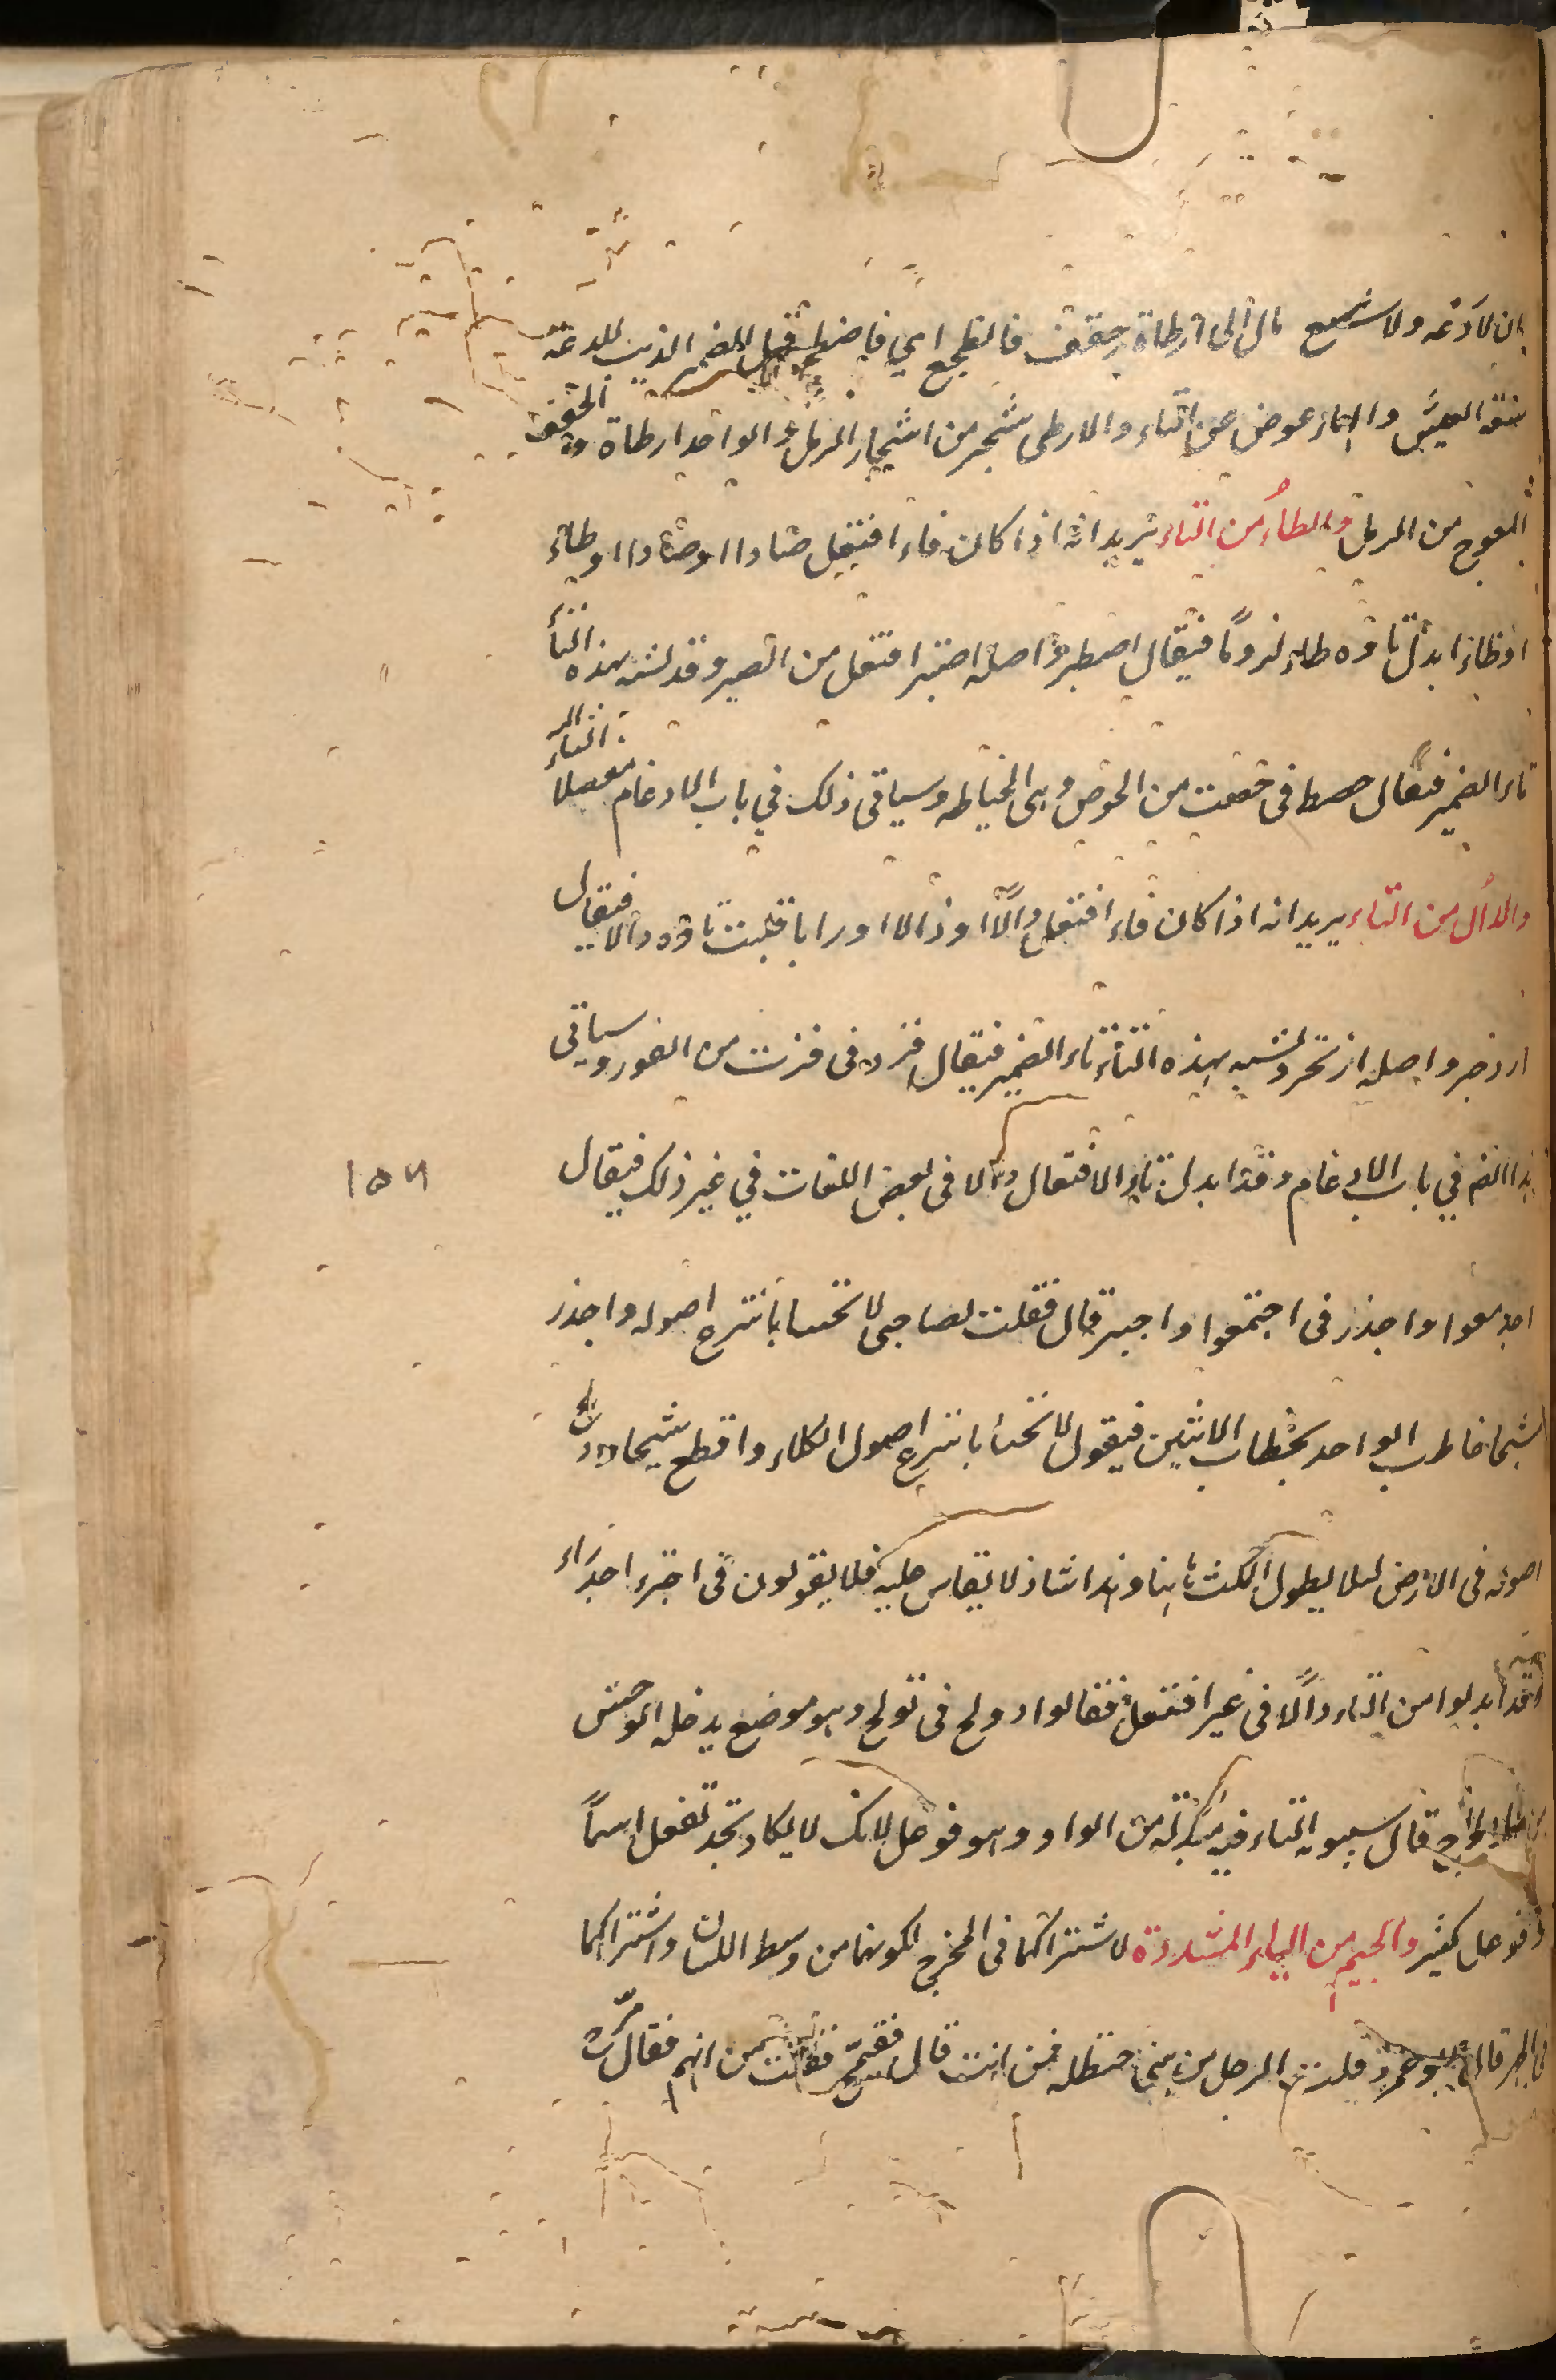 ان لا دعه ولا شبع مال الى ارطاة حقف فالطجع اي فاضطجع قيل الضمير الذيب للدعة
سعة العيش والهاء عوض عن التاء والارطى شجر من اشجار الرمل والواحد ارطاة والحقف
المعوج من الرمل والطاءُ من التاء يريد انه اذا كان فاء افتعل صادا او ضادا او طاء
او ظاء ابدل تاؤه طاء لزوماً فيقال اصطبر واصله اصتبر افتعل من الصبر وقد شبه بهذه التاء
تاء الضمير فيقال حصط فى حصت من الحوص وهى الخياطه وسياتى ذلك في باب الادغام مفصلا
والدال من التاء يريد انه اذا كان فاء افتعل دالًا او ذالا او زايا قلبت تاؤه دالا فيقال
ازدجر واصله ازتجر وشبه بهذه التاء تاء الضمير فيقال فزد فى فزت من الفوز وسياتى
هذا ايضا في باب الادغام وقد ابدل تاء الافتعال دالا فى بعض اللغات في غير ذلك فيقال
اجدمعوا واجدز فى اجتمعوا واجتز قال فقلت لصاحبى لا تحبسانا بنزع اصوله واجدز
شيحا خاطب الواحد بخطاب الاثنين فيقول لا تحبسنا بنزع اصول الكلاء واقطع شيحا
اصوله فى الارض لئلا يطول المكث هاهنا وهذا شاذ لا يقاس عليه فلا يقولون فى اجترء اجدراء
وقد ابدلوا من التاء دالًا فى غير افتعل فقالوا دولج فى تولج وهو موضع يدخله الوحش
قال سيبويه التاء فيه مبدلة من الواو وهو فوعل لانك لا يكاد تجد تفعل اسماً
وفوعل كثير والجيم من الياء المشددة لاشتراكهما فى المخرج لكونهما من وسط اللسان واشتراكهما
فى الجهر قال ابو عمرو قلت لرجل من بنى حنظله ممن انت قال فقيمج فقلت من ايهم فقال مرج
١٥٦